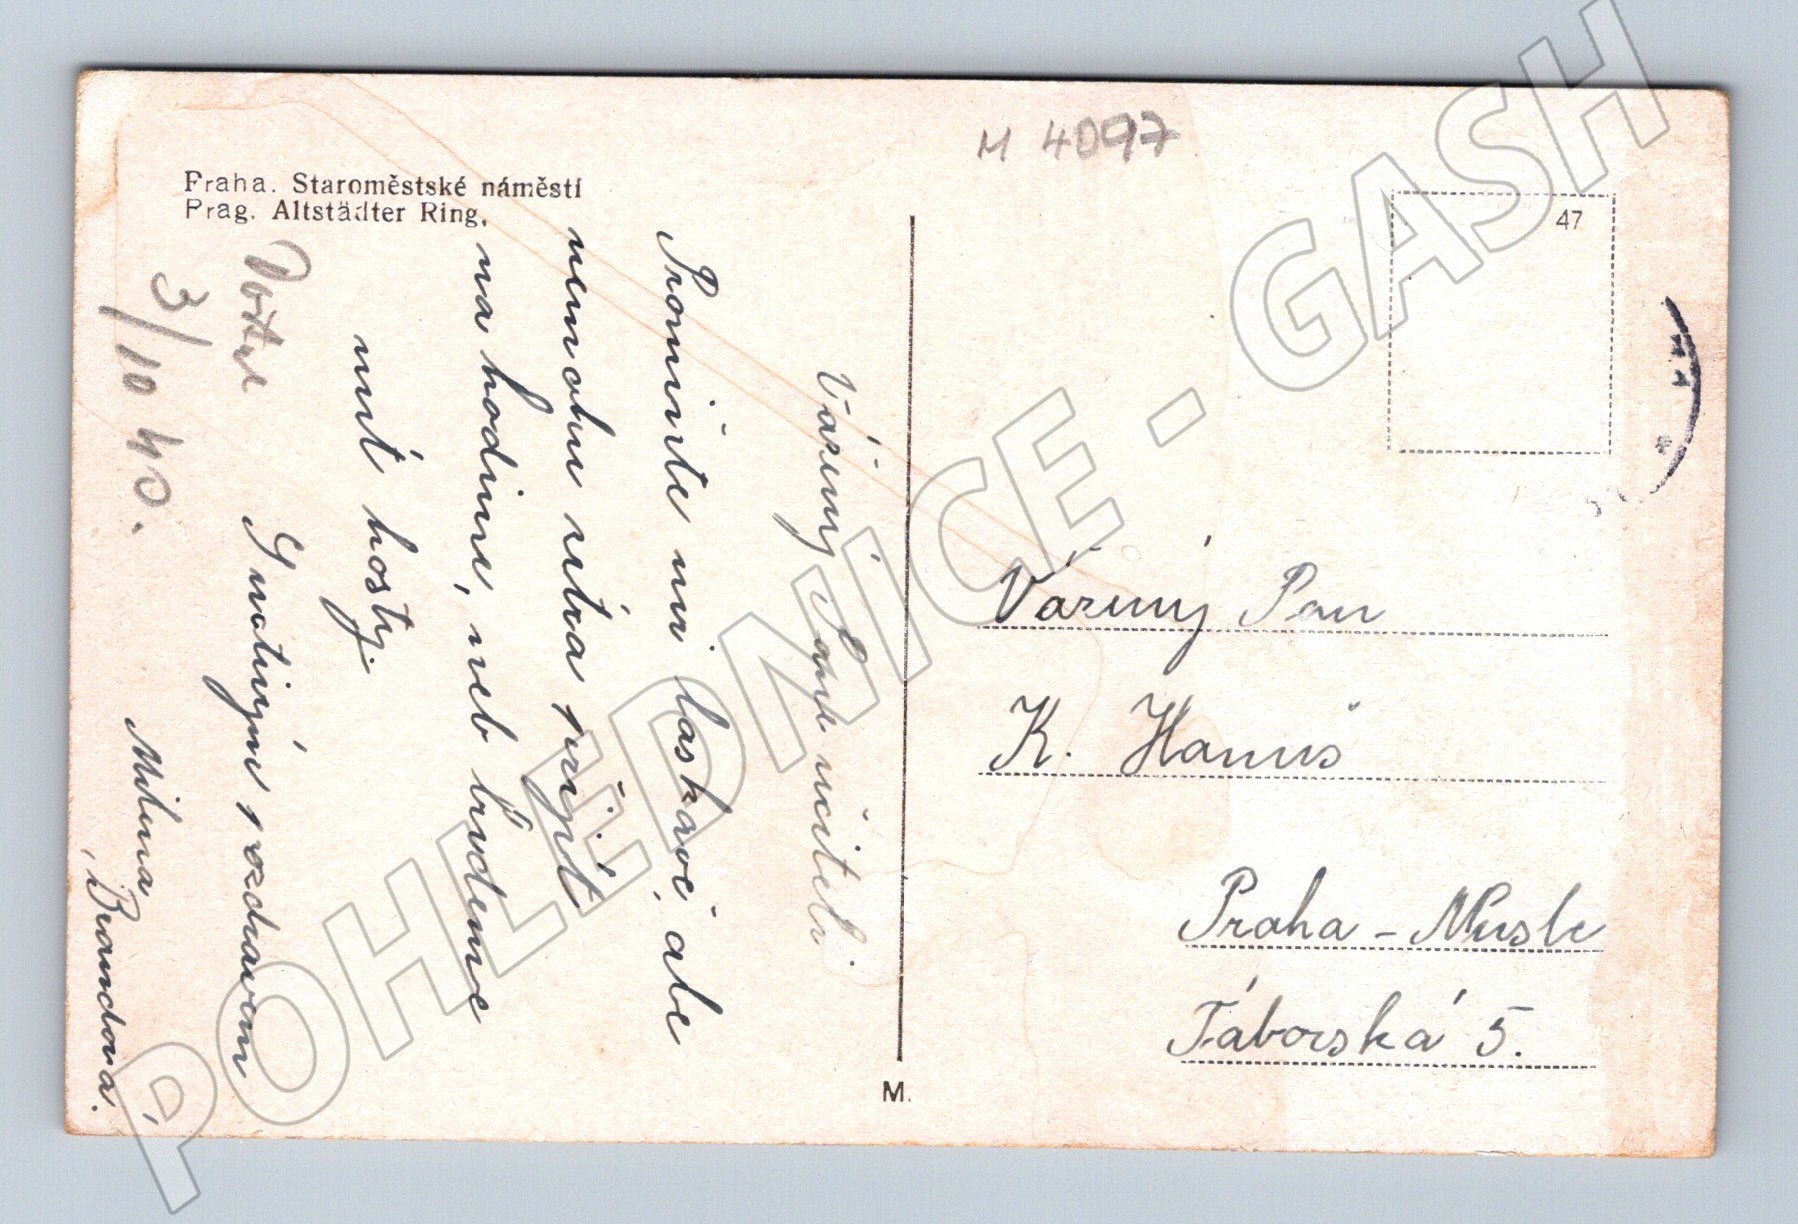 Praha. Staroměstské náměstí
Prag. Altstädter Ring.
M 4097
47
Vážený Pane učiteli.
Promiňte mi laskavě, ale
nemohu zítra přijít
na hodinu, neb budeme
mít hosty.
S uctivým pozdravem
Milena
Brandová.
3/10 40.
Vážený Pan
K. Hanuš
Praha - Nusle
Táborská 5.
M.
POHLEDNICE - GASH